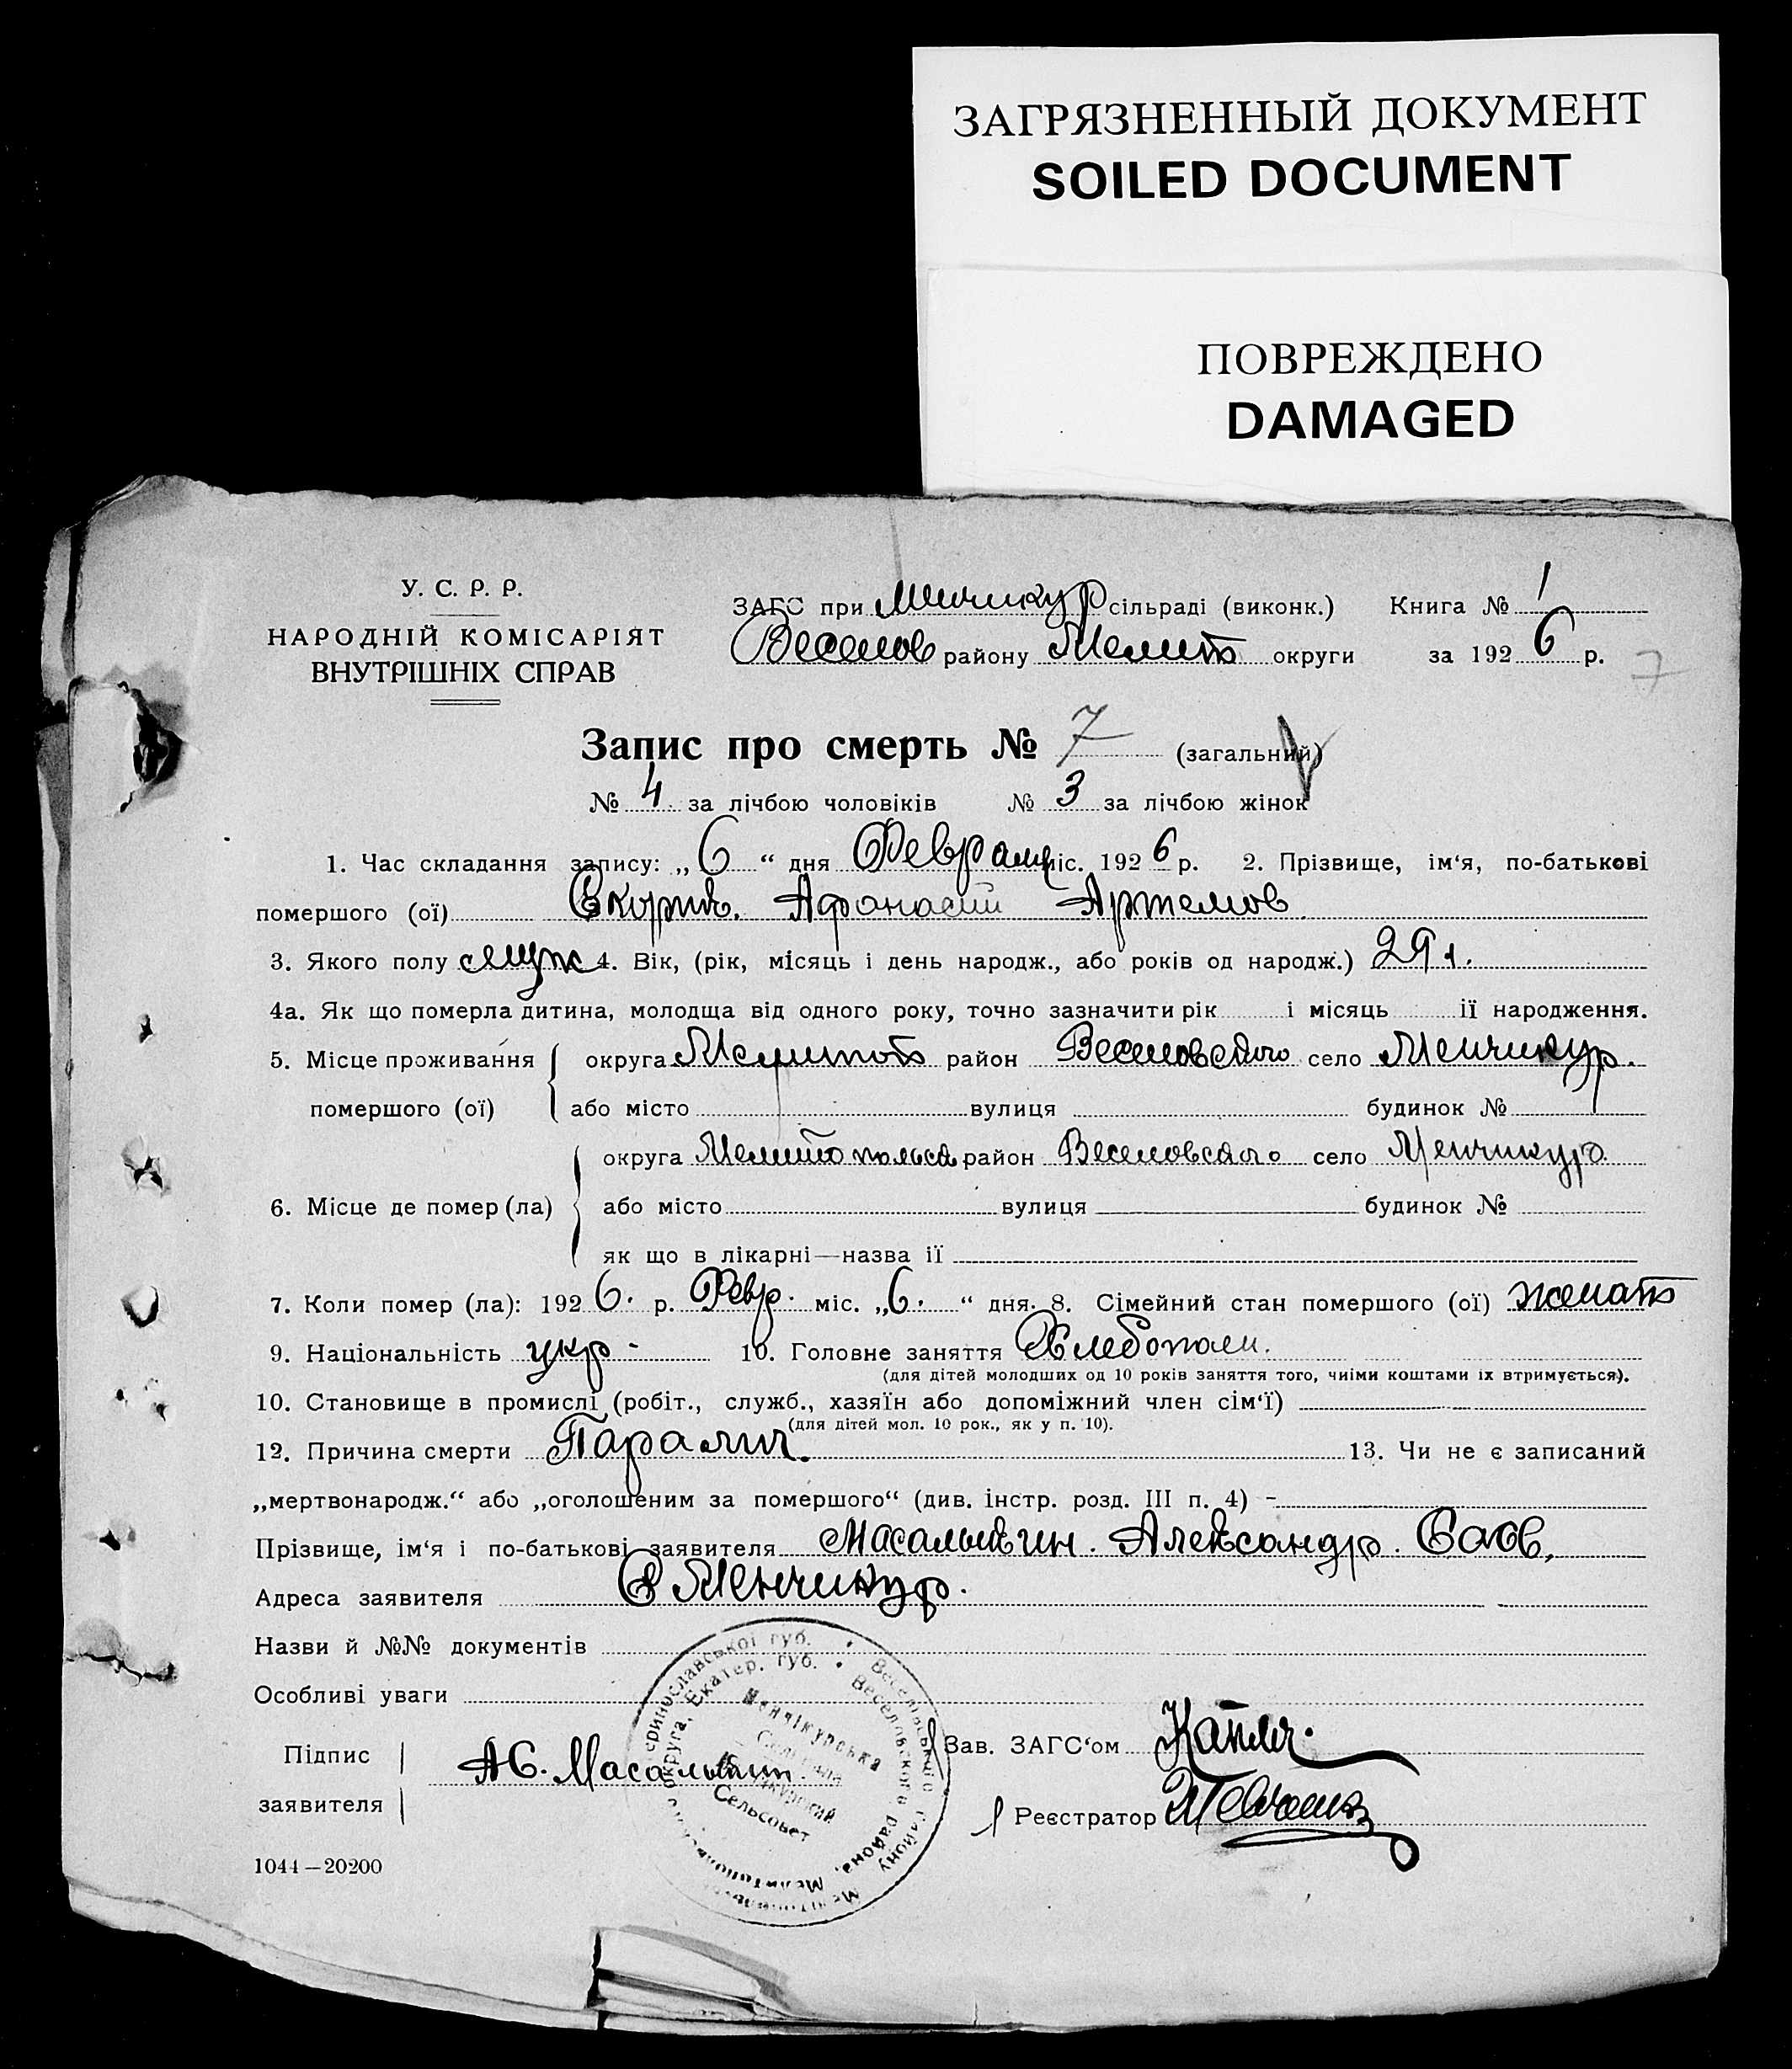 ЗАГРЯЗНЕННЫЙ ДОКУМЕНТ
SOILED DOCUMENT
ПОВРЕЖДЕНО
DAMAGED
У. С. Р. Р.
НАРОДНІЙ КОМІСАРІЯТ
ВНУТРІШНІХ СПРАВ
ЗАГС при Менчикур сільраді (виконк.) Книга № 1
Веселов району Мелит округи за 192 6 р.
7
Запис про смерть № 7 (загальний)
№ 4 за лічбою чоловіків № 3 за лічбою жінок
1. Час складання запису: „ 6 “ дня Февраля міс. 192 6 р. 2. Прізвище, ім‘я, по-батькові
помершого (ої) Афанасий Артемов
3. Якого полу муж 4. Вік, (рік, місяць і день народж., або років од народж.) 29 л.
4а. Як що померла дитина, молодща від одного року, точно зазначити рік і місяць ії народження.
5. Місце проживання округа Мелитоп район Веселовского село Менчикур.
помершого (ої) або місто вулиця будинок №
округа Мелитопольск район Веселовского село Менчикур.
6. Місце де помер (ла) або місто вулиця будинок №
як що в лікарні—назва ії
7. Коли помер (ла): 192 6. р. Февр. міс. „ 6. “ дня. 8. Сімейний стан помершого (ої) женат
9. Національність укр - 10. Головне заняття Хлебопаш.
(для дітей молодших од 10 років заняття того, чиїми коштами іх втримується).
10. Становище в промислі (робіт., служб., хазяїн або допоміжний член сім‘ї)
(для дітей мол. 10 рок., як у п. 10).
12. Причина смерти Паралич. 13. Чи не є записаний
„мертвонародж.“ або „оголошеним за помершого“ (див. інстр. розд. III п. 4) -
Прізвище, ім‘я і по-батькові заявителя Масалыкин. Александр. Савв.
Адреса заявителя С Менчикур.
Назви й №№ документів
Особливі уваги
Підпис
заявителя
А С. Масалыкин
Зав. ЗАГС‘ом
Реєстратор Шевченко
еринославської губ. • Веселівського району
округа, Екатер. губ. • Веселовского района, Мелитопольского
Менчікурська
Сельрада
Менчикурский
Сельсовет
1044—20200